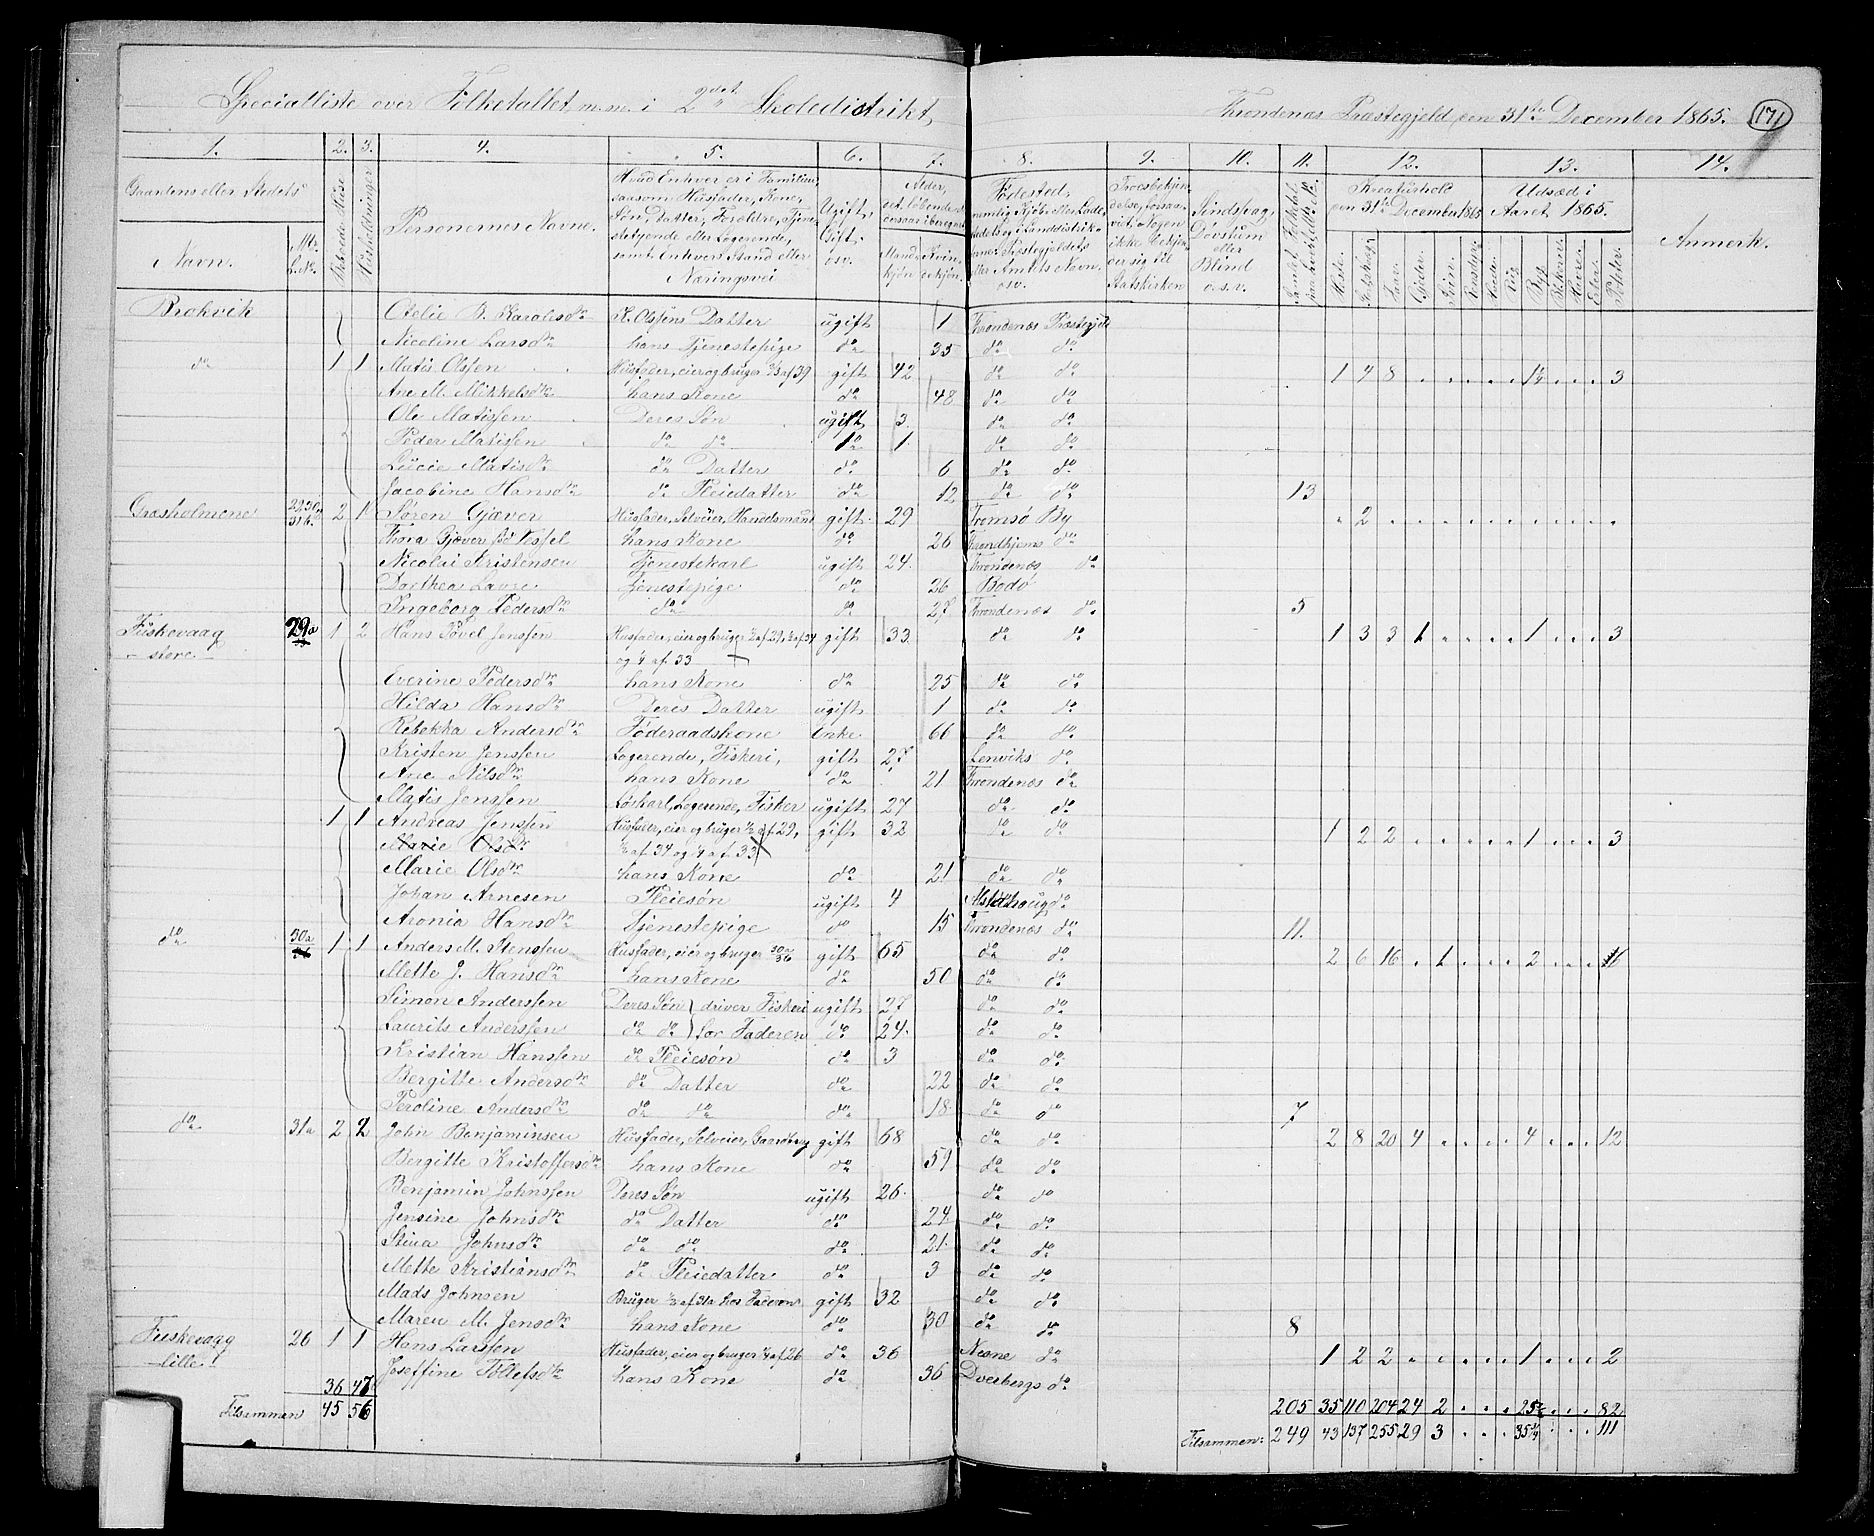 Specialliste over Folketallet m.m. i 2det Skoledistrikt, Throndenæs Præstegjeld den 31te December 1865. 171
1. 2. 3. 4. 5. 6. 7. 8. 9. 10. 11. 12. 13. 14.
Gaardens eller Stedets Navn. Mtr. L.Nr. Beboede Huse Husholdninger Personernes Navne. Hvad Enhver er i Familien, saasom Husfader, Kone, Søn, Datter, Forældre, Tjenestetyende eller Logerende, samt Enhvers Stand eller Næringsvei Ugift, Gift, osv. Alder, det løbende Aldersaar iberegnet Mandkjøn Kvindekjøn Fødested, Troesbekjendelse, forsaavidt Nogen ikke bekjender sig til Statskirken Sindssvag, Døvstum eller Blind o.s.v. Kreaturhold den 31te December 1865 Udsæd i Aaret 1865. Anmerk.
Heste. Faar. Gjeder. Sviin. Rensdyr. Hvede. Rug. Byg. Havre. Erter. Poteter.
Brokvik Otelie B. Karolesdr K. Olssens Datter ugift 1 Throndenæs Præstegjeld
Nicoline Larsdr hans Tjenestepige do 35 do do
do 1 1 Matis Olssen Husfader, eier og bruger 2/3 af 39 gift 42 do do 1 4 8 1½ 3
Ane M. Mikkelsdr hans Kone do 48 do do
Ole Matissen Deres Søn ugift 3 do do
Peder Matissen do do do 1 do do
Lucie Matisdr do Datter do 6 do do
Jacobine Hansdr do Pleiedatter do 12 do do 13
Græsholmene 29,30 31b. 2 1 Søren Gjæver Husfader, Selveier, Handelsmand gift 29 Tromsø By 2
Thora Gjæver hans Kone do 26 Throndhjems do
Nicolai Kristensen Tjenestekarl ugift 24 Throndenæs do
Dorthea Lange Tjenestepige do 26 Bodø
Ingeborg Pedersdr do do 27 Throndenæs do 5
Fuskevaag 29a 1 2 Hans Povel Jenssen Husfader, eier og bruger ½ af 29, ½ af 34 gift 33 do do 1 3 3 1 1 3
- store - og 4 af 33
Everine Pedersdr hans Kone do 25 do do
Hilda Hansdr Deres Datter ugift 1 do do
Rebekka Andersdr Føderaadskone Enke 66 do do
Kristen Jenssen Logerende, Fiskeri, gift 27 Lenviks do
Ane Nilsdr hans Kone do 21 Throndenæs do
Matis Jenssen Løskarl, Logerende, Fisker ugift 27 do do
1 1 Andreas Jenssen Husfader, eier og bruger ½ af 29, gift 32 do do 1 2 2 1 3
Marie Olsdr ½ af 34 og 4 af 33
Marie Olsdr hans Kone do 21 do do
Johan Arnesen Pleiesøn ugift 4 Alstahaug do
Aronia Hansdr Tjenestepige do 15 Throndenæs do 11.
do 30a 1 1 Anders M. Stenssen Husfader, eier og bruger 30a gift 65 do do 2 6 16 1 2 16
Mette J. Hansdr hans Kone do 50 do do
Simon Anderssen Deres Søn driver Fiskeri ugift 27 do do
Laurits Anderssen do do for Faderen do 24 do do
Kristian Hanssen do Pleiesøn do 3 do do
Bergitte Andersdr do Datter do 22 do do
Peroline Andersdr do do do 18 do do 7
do 31a 2 2 John Benjaminsen Husfader, Selveier, Gaardbrug gift 68 do do 2 8 20 4 4 12
Bergitte Kristoffersdr hans Kone do 59 do do
Benjamin Johnssen Deres Søn ugift 26 do do
Jensine Johnsdr do Datter do 24 do do
Stina Johnsdr do do do 21 do do
Mette Kristiansdr do Pleiedatter do 3 do do
Mads Johnsen Bruger ½ af 31a hos Faderen gift 32 do do
Maren M. Jensdr hans Kone do 30 do do 8
Fuskevaag 26 1 1 Hans Larssen Husfader, eier og bruger ¼ af 26 do 36 Næsne do 1 2 2 1 2
- lille Joseffine Tollefsdr hans Kone do 36 Dverbergs do
36 47 205 35 110 204 24 2 82
Tilsammen 45 56 Tilsammen: 249 43 137 255 29 3 35¼ 111